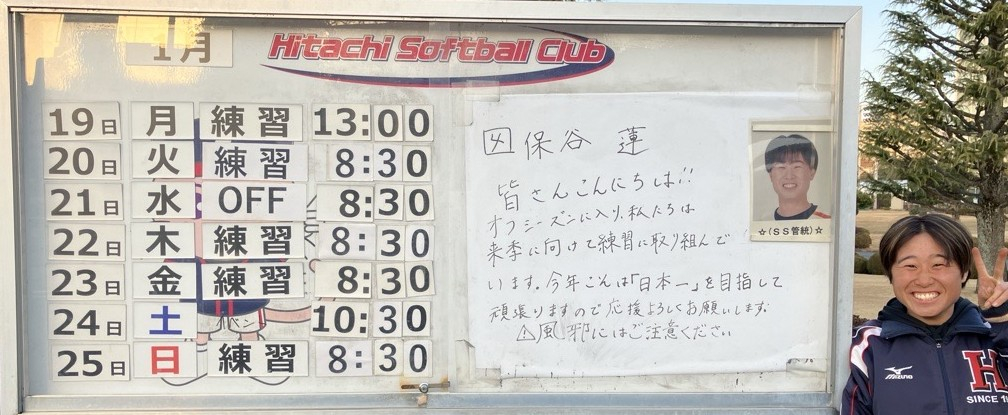 1月
Hitachi Softball Club
19日 月 練習 13:00
20日 火 練習 8:30
21日 水 OFF 8:30
22日 木 練習 8:30
23日 金 練習 8:30
24日 土 10:30
25日 日 練習 8:30
4 保谷 蓮
皆さんこんにちは!!
オフシーズンに入り、私たちは
来季に向けて練習に取り組んで
います。今年こんは「日本一」を目指して
頑張りますので応援よろしくお願いします。
⚠風邪にはご注意ください
☆(SS管統)☆
MIZUNO
H
SINCE 1